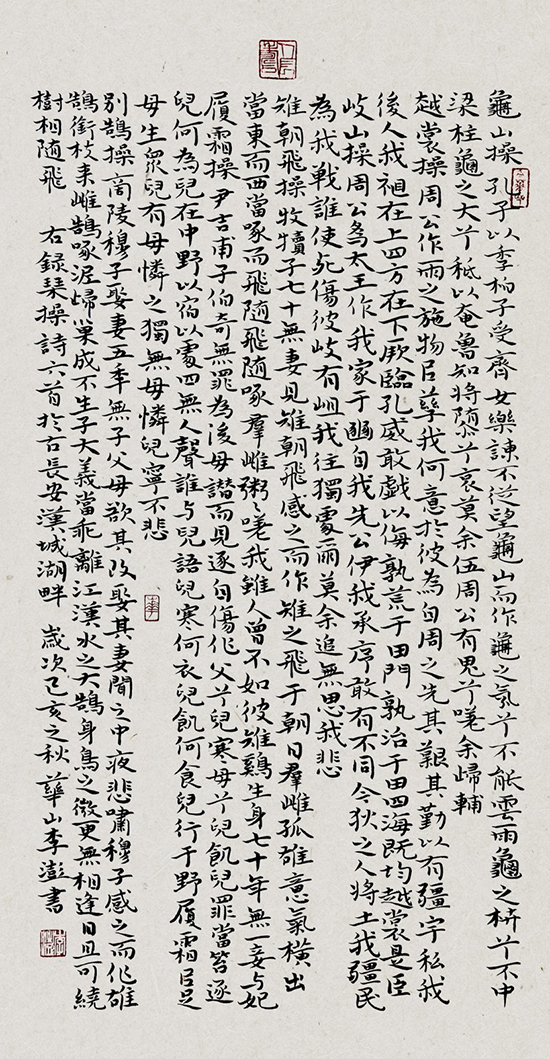 龜山操 孔子以季桓子受齊女樂諫不從望龜山而作龜之氛兮不能雲雨龜之枿兮不中
梁柱龜之大兮秖以奄魯知將隳兮哀莫余伍周公有鬼兮嗟余歸輔
越裳操周公作雨之施物以孳我何意於彼為自周之先其艱其勤以有疆宇私我
後人我祖在上四方在下厥臨孔威敢戲以侮孰荒于田門孰治于田四海既均越裳是臣
岐山操周公為太王作我家于豳自我先公伊我承序敢有不同今狄之人將土我疆民
為我戰誰使死傷彼岐有岨我往獨處爾莫余追無思我悲
雉朝飛操牧犢子七十無妻見雉朝飛感之而作雉之飛于朝日羣雌孤雄意氣橫出
當東而西當啄而飛隨飛隨啄羣雌粥〻嗟我雖人曾不如彼雉鷄生身七十年無一妾与妃
履霜操 尹吉甫子伯奇無罪為後母譖而見逐自傷作父兮兒寒母兮兒飢兒罪當笞逐
兒何為兒在中野以宿以處四無人聲誰与兒語兒寒何衣兒飢何食兒行于野履霜以足
母生眾兒有母憐之獨無母憐兒寧不悲
別鵠操商陵穆子娶妻五年無子父母欲其改娶其妻聞之中夜悲嘯穆子感之而作雄
鵠銜枝來雌鵠啄泥歸巢成不生子大義當乖離江漢水之大鵠身鳥之微更無相逢日且可繞
樹相隨飛 右錄琴操詩六首於古長安漢城湖畔 歲次己亥之秋 華山李澎書